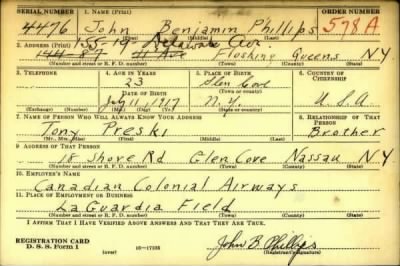 SERIAL NUMBER 1. NAME (Print) ORDER NUMBER
4476 John Benjamin Phillips 578A
(First) (Middle) (Last)
155-19 Delaware Ave.
2. ADDRESS (Print)
Flushing Queens NY
(Number and street or R. F. D. number) (Town) (County) (State)
3. TELEPHONE 4. AGE IN YEARS 5. PLACE OF BIRTH 6. COUNTRY OF CITIZENSHIP
23 Glen Cove
DATE OF BIRTH (Town or county)
July 11, 1917 N.Y. U.S.A
(Exchange) (Number) (Mo.) (Day) (Yr.) (State or country)
7. NAME OF PERSON WHO WILL ALWAYS KNOW YOUR ADDRESS 8. RELATIONSHIP OF THAT PERSON
Tony Preski Brother
(Mr., Mrs., Miss) (First) (Middle) (Last)
9. ADDRESS OF THAT PERSON
18 Shore Rd Glen Cove Nassau NY
(Number and street or R. F. D. number) (Town) (County) (State)
10. EMPLOYER'S NAME
Canadian Colonial Airways
11. PLACE OF EMPLOYMENT OR BUSINESS
La Guardia Field
(Number and street or R. F. D. number) (Town) (County) (State)
I AFFIRM THAT I HAVE VERIFIED ABOVE ANSWERS AND THAT THEY ARE TRUE.
REGISTRATION CARD
D. S. S. Form 1 (over) 16-17105 John B. Phillips
(Registrant's signature)